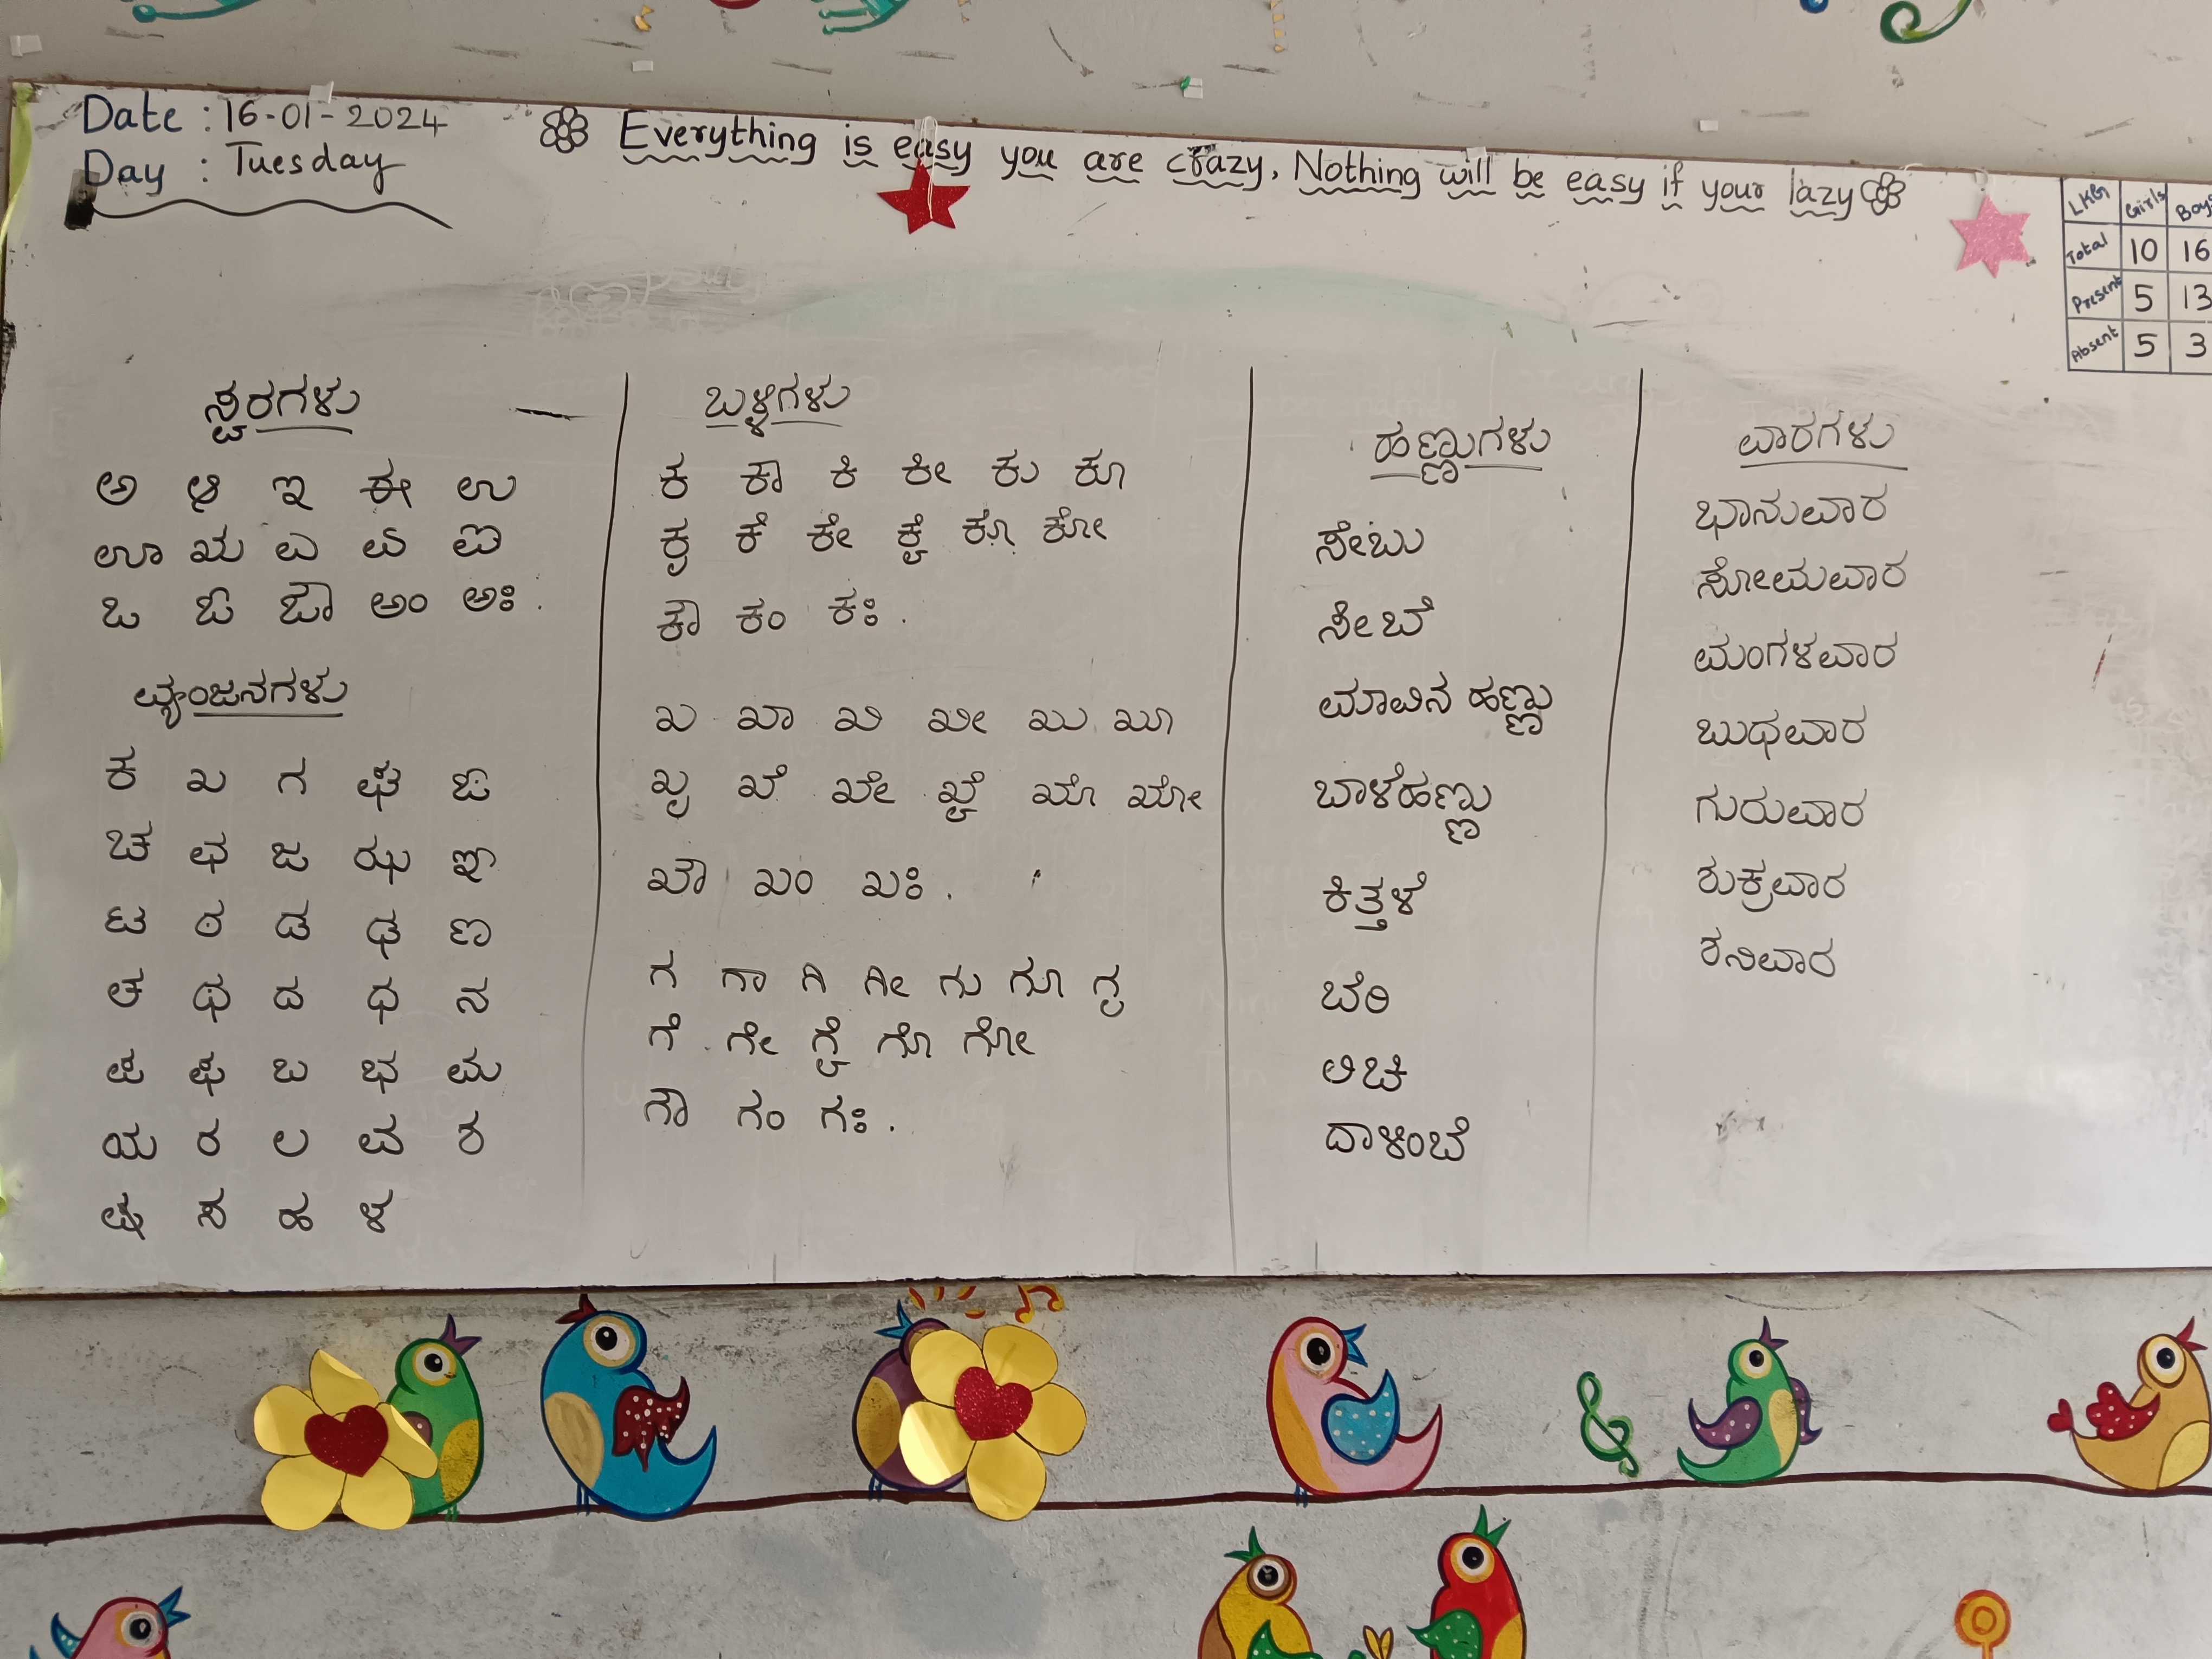 Date : 16-01-2024
Day : Tuesday
Everything is easy you are crazy, Nothing will be easy if your lazy
LKG Girls Boys
Total 10 16
Present 5 13
Absent 5 3
ಸ್ವರಗಳು
ಅ ಆ ಇ ಈ ಉ
ಊ ಋ ಎ ಏ ಐ
ಒ ಓ ಔ ಅಂ ಅಃ.
ವ್ಯಂಜನಗಳು
ಕ ಖ ಗ ಘ ಙ
ಚ ಛ ಜ ಝ ಞ
ಟ ಠ ಡ ಢ ಣ
ತ ಥ ದ ಧ ನ
ಪ ಫ ಬ ಭ ಮ
ಯ ರ ಲ ವ ಶ
ಷ ಸ ಹ ಳ
ಬಳ್ಳಿಗಳು
ಕ ಕಾ ಕಿ ಕೀ ಕು ಕೂ
ಕೃ ಕೆ ಕೇ ಕೈ ಕೊ ಕೋ
ಕೌ ಕಂ ಕಃ.
ಖ ಖಾ ಖಿ ಖೀ ಖು ಖೂ
ಖೃ ಖೆ ಖೇ ಖೈ ಖೊ ಖೋ
ಖೌ ಖಂ ಖಃ.
ಗ ಗಾ ಗಿ ಗೀ ಗು ಗೂ ಗೃ
ಗೆ ಗೇ ಗೈ ಗೊ ಗೋ
ಗೌ ಗಂ ಗಃ.
ಹಣ್ಣುಗಳು
ಸೇಬು
ಸೀಬೆ
ಮಾವಿನ ಹಣ್ಣು
ಬಾಳೆಹಣ್ಣು
ಕಿತ್ತಳೆ
ಬೆರಿ
ಲಿಚಿ
ದಾಳಿಂಬೆ
ವಾರಗಳು
ಭಾನುವಾರ
ಸೋಮವಾರ
ಮಂಗಳವಾರ
ಬುಧವಾರ
ಗುರುವಾರ
ಶುಕ್ರವಾರ
ಶನಿವಾರ